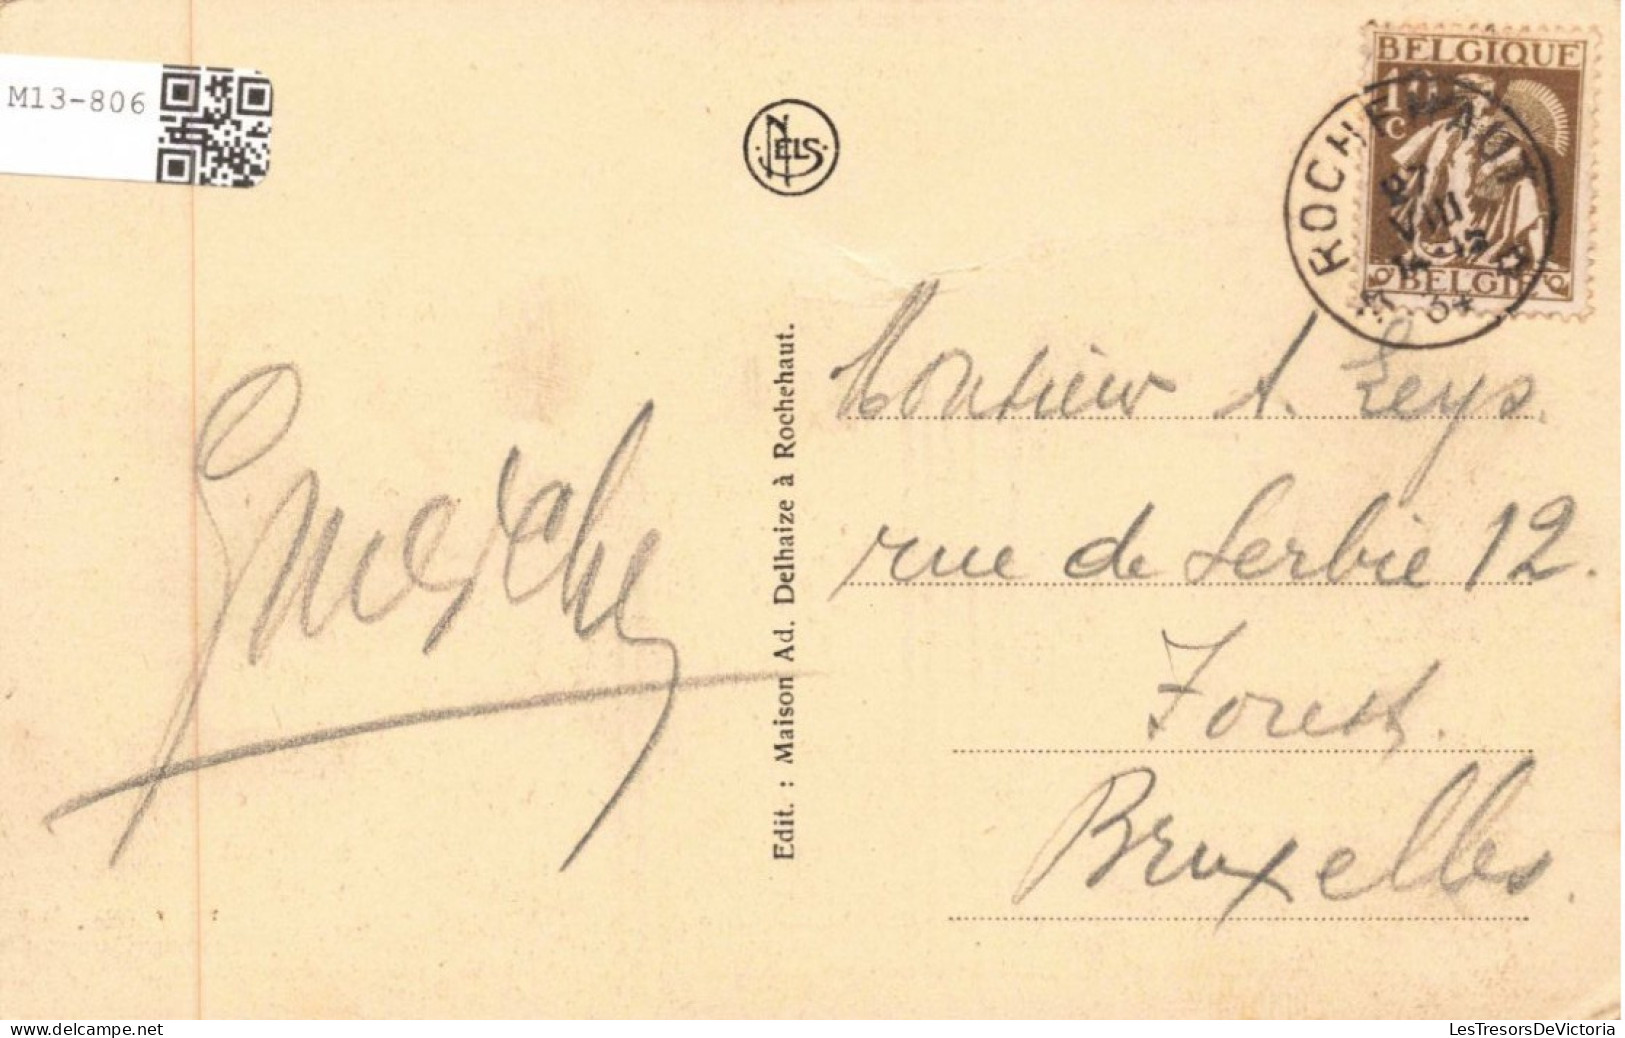 M13-806
NELS
BELGIQUE
1 C
BELGIE
ROCHEHAUT
VIII
34
Edit. : Maison Ad. Delhaize à Rochehaut.
Monsieur A. Leys.
rue de Serbie 12.
Forest.
Bruxelles.
LesTresorsDeVictoria